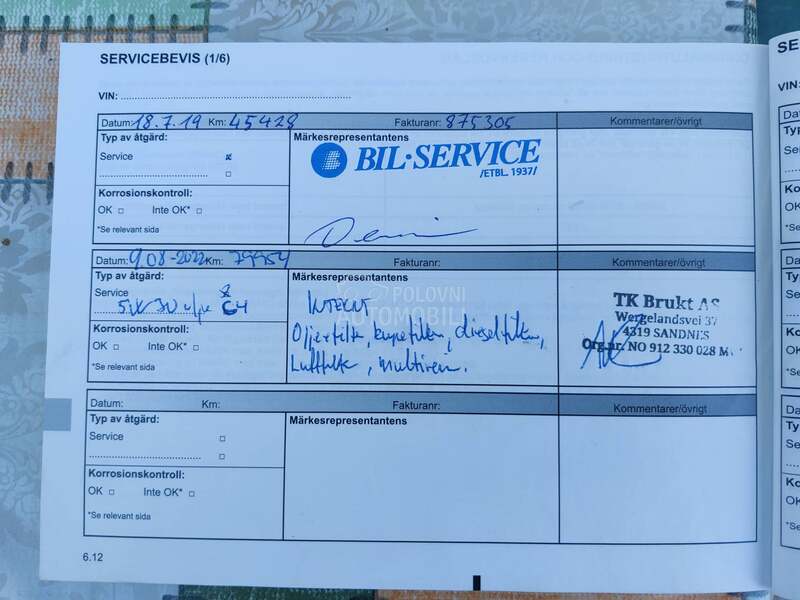 SERVICEBEVIS (1/6)
VIN:
Datum: 18.7.19 Km: 45428 Fakturanr: 875305 Kommentarer/övrigt
Typ av åtgärd: Märkesrepresentantens
Service x
BIL·SERVICE
/ETBL. 1937/
Korrosionskontroll:
OK Inte OK*
*Se relevant sida
Datum: 9.08-2022 Km: 79954 Fakturanr: Kommentarer/övrigt
Typ av åtgärd: Märkesrepresentantens
Service x
5W30 C4
INTERNT
Oljefilter, kupefilter, dieselfilter,
Luftfilter, multireim.
TK Brukt AS
Wergelandsvei 37
4319 SANDNES
Org.nr. NO 912 330 028 M
Korrosionskontroll:
OK Inte OK*
*Se relevant sida
POLOVNI
AUTOMOBILI
Datum: Km: Fakturanr: Kommentarer/övrigt
Typ av åtgärd: Märkesrepresentantens
Service
Korrosionskontroll:
OK Inte OK*
*Se relevant sida
6.12
SE
VIN:
Da
Typ
Ser
Kor
OK
*Se
Da
Ty
Se
Ko
OK
*Se
Da
Ty
Se
Ko
OK
*Se